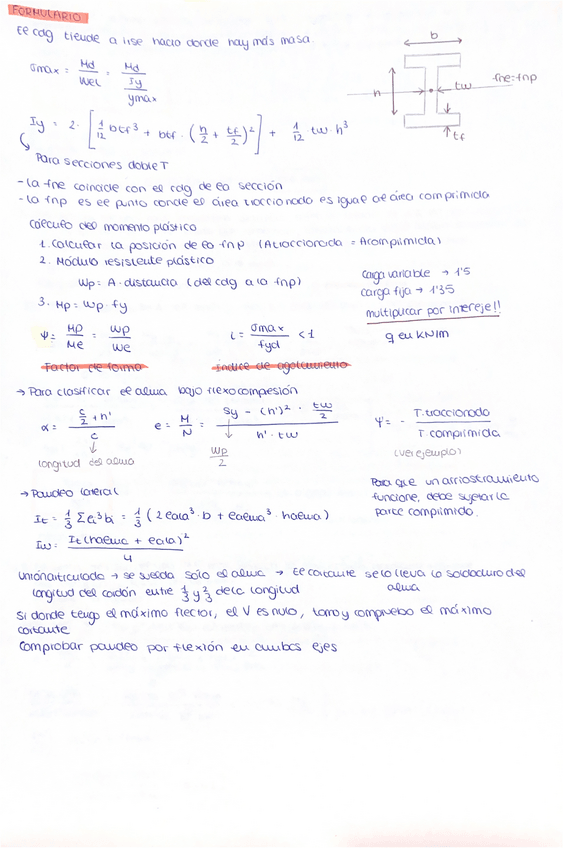 FORMULARIO
El cdg tiende a irse hacia donde hay más masa.
σmax = Md / Wel = Md / (Iy / ymax)
b
h
tw
fne=fnp
tf
Iy = 2· [ 1/12 b tf³ + b tf · (h/2 + tf/2)² ] + 1/12 · tw · h³
Para secciones doble T
- La fne coincide con el cdg de la sección
- La fnp es el punto donde el área traccionada es igual al área comprimida
Cálculo del momento plástico
1. Calcular la posición de la fnp (Atraccionada = Acomprimida)
2. Módulo resistente plástico
Wp = A · distancia (del cdg a la fnp)
3. Mp = Wp · fy
carga variable → 1'5
carga fija → 1'35
multiplicar por intereje!!
q en kN/m
Ψ = Mp / Me = Wp / We
i = σmax / fyd < 1
Factor de forma
índice de agotamiento
→ Para clasificar el alma bajo flexocompresión
α = (c/2 + h') / c
longitud del alma
e = M / N = (Sy - (h')² · tw/2) / (h' · tw)
Wp / 2
Ψ = - T. traccionado / T. comprimida
(ver ejemplo)
Para que un arriostramiento
funcione, debe sujetar la
parte comprimida.
→ Pandeo lateral
It = 1/3 Σ ei³ bi = 1/3 (2 eala³ · b + ealma³ · halma)
Iw = It (halma + eala)² / 4
Unión articulada → se suelda sólo el alma → El cortante se lo lleva la soldadura del
alma
longitud del cordón entre 1/3 y 2/3 de la longitud
Si donde tengo el máximo flector, el V es nulo, tomo y compruebo el máximo
cortante
Comprobar pandeo por flexión en ambos ejes